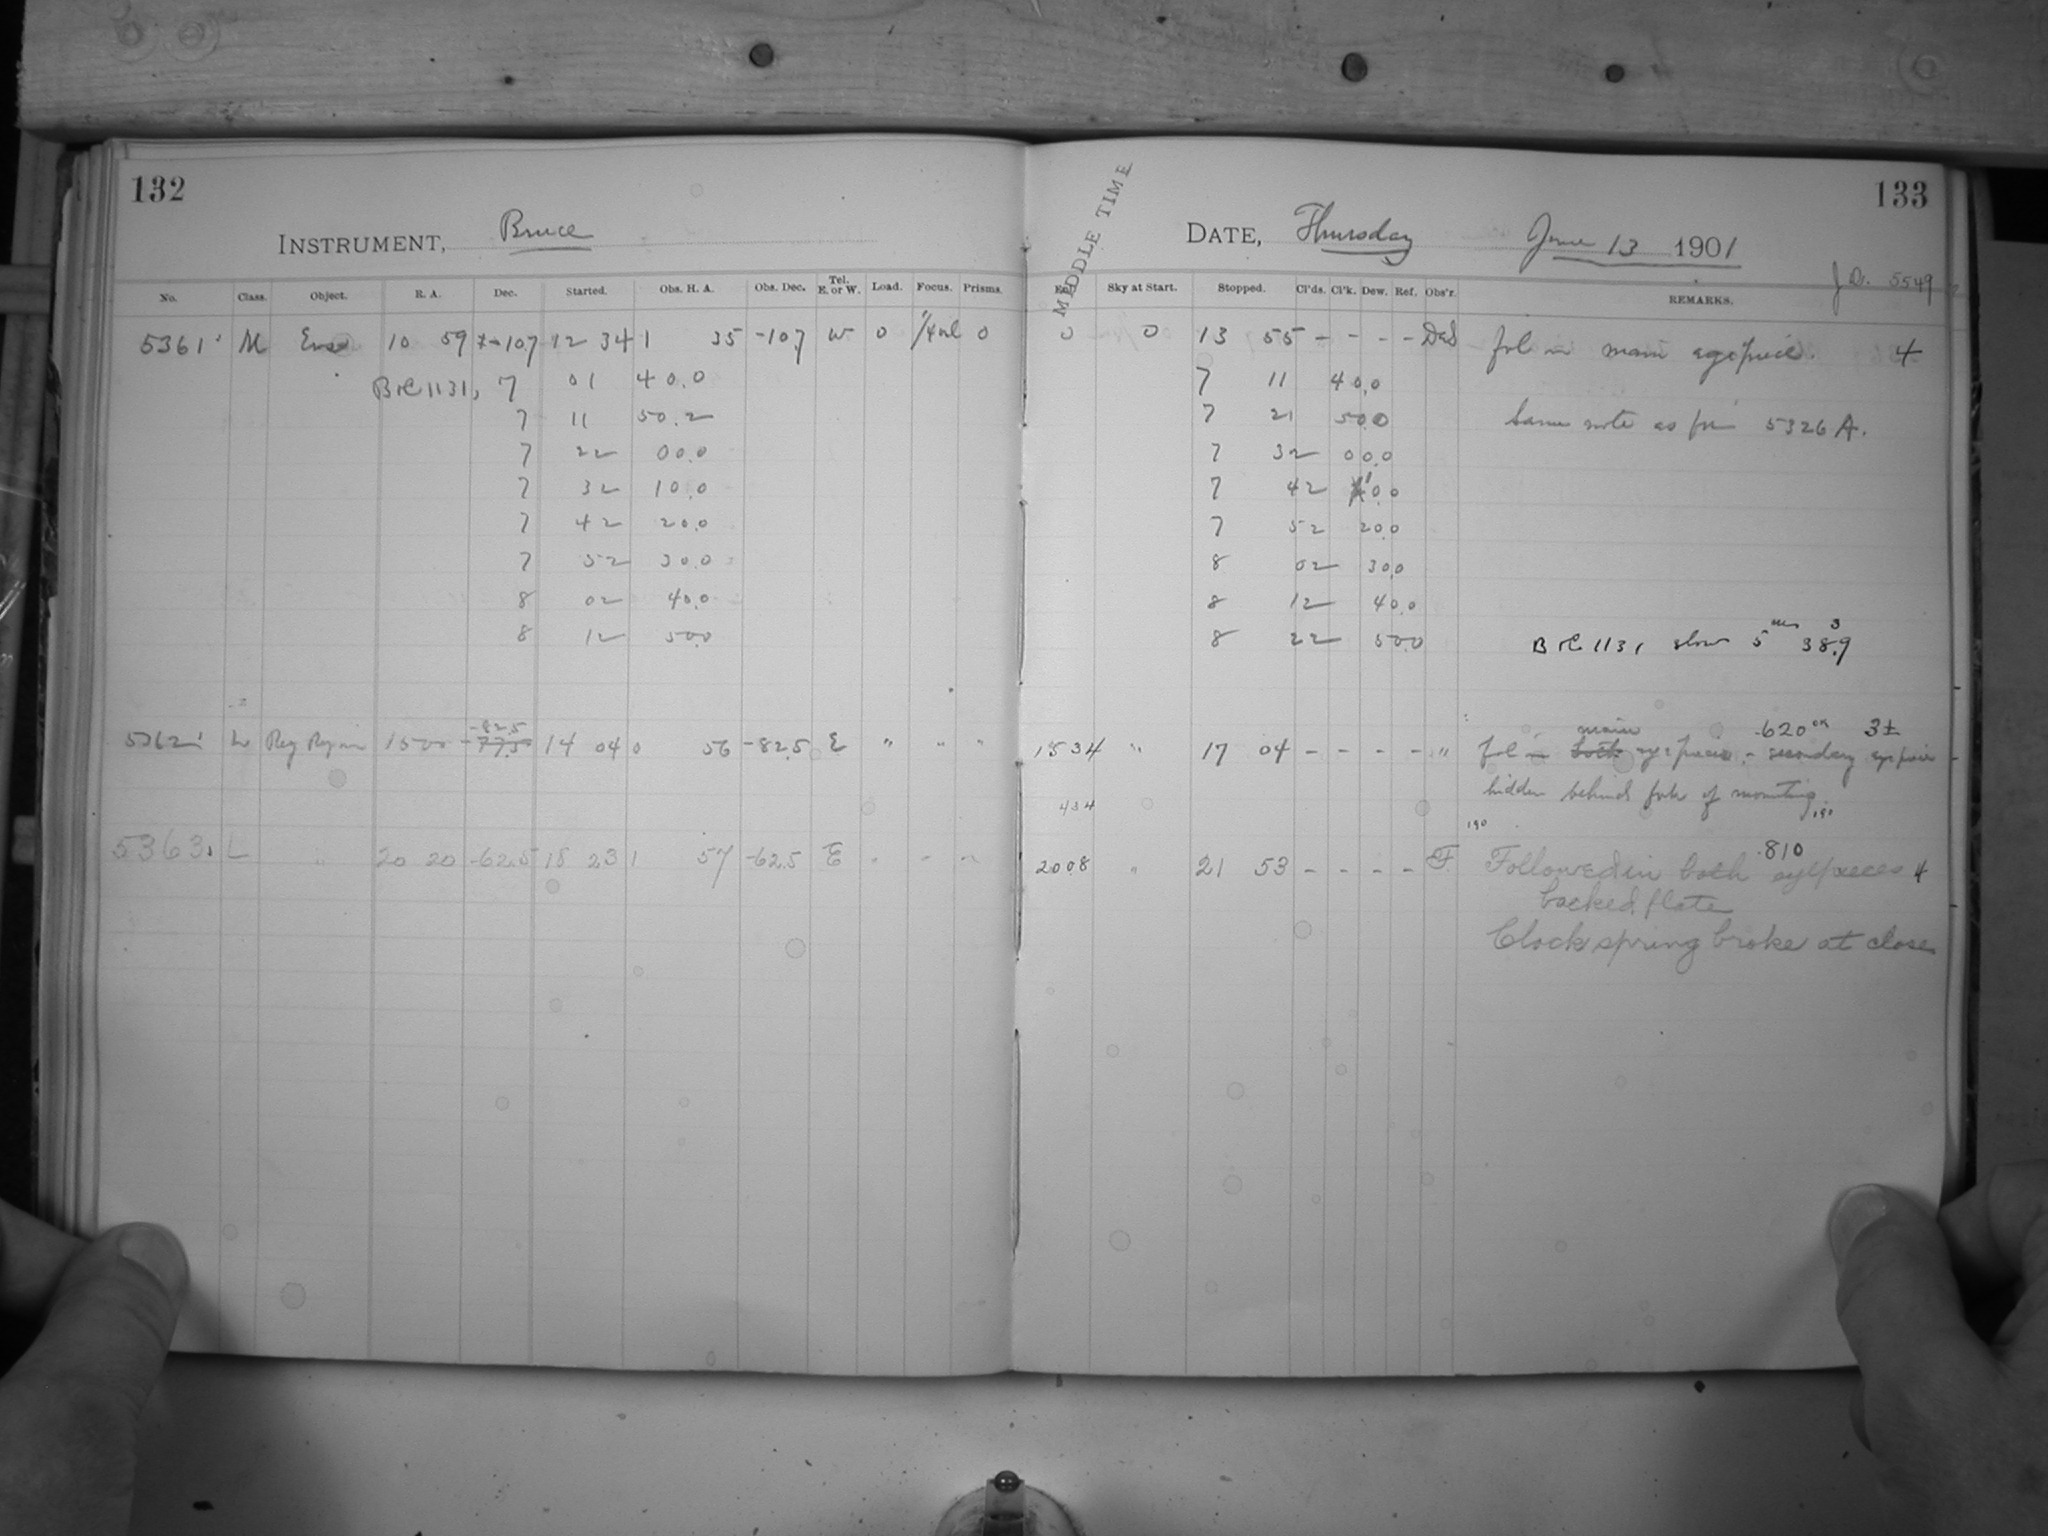 132
INSTRUMENT, Bruce
No. Class. Object. R. A. Dec. Started. Obs. H. A. Obs. Dec. Tel. E. or W. Load. Focus. Prisms.
5361 M Eros 10 59 -10.7 12 34 1 35 -10.7 W 0 0
1131, 7 01 40.0
7 11 50.2
7 22 00.0
7 32 10.0
7 42 20.0
7 52 30.0
8 02 40.0
8 12 50.0
-82.5
5362 L Reg Region 15 00 -77.5 14 04 0 56 -82.5 E " " "
5363 L " 20 20 -62.5 18 23 1 57 -62.5 E " " "
133
MIDDLE TIME
DATE, Thursday June 13 1901
J.D. 5549
Sky at Start. Stopped. Cl'ds. Cl'k. Dew. Ref. Obs'r. REMARKS.
0 0 13 55 - - - - fol in main eyepiece. 4
7 11 40.0
7 21 50.0 Same note as for 5326 A.
7 32 00.0
7 42 10.0
7 52 20.0
8 02 30.0
8 12 40.0
8 22 50.0 1131 slow 5 38.9
3
main .620 3±
1534 " 17 04 - - - - " fol in both eyepieces - secondary eyepiece
hidden behind fork of mounting.
434
190
190
.810
2008 " 21 53 - - - - F. Followed in both eyepieces 4
backed plate
Clock spring broke at close